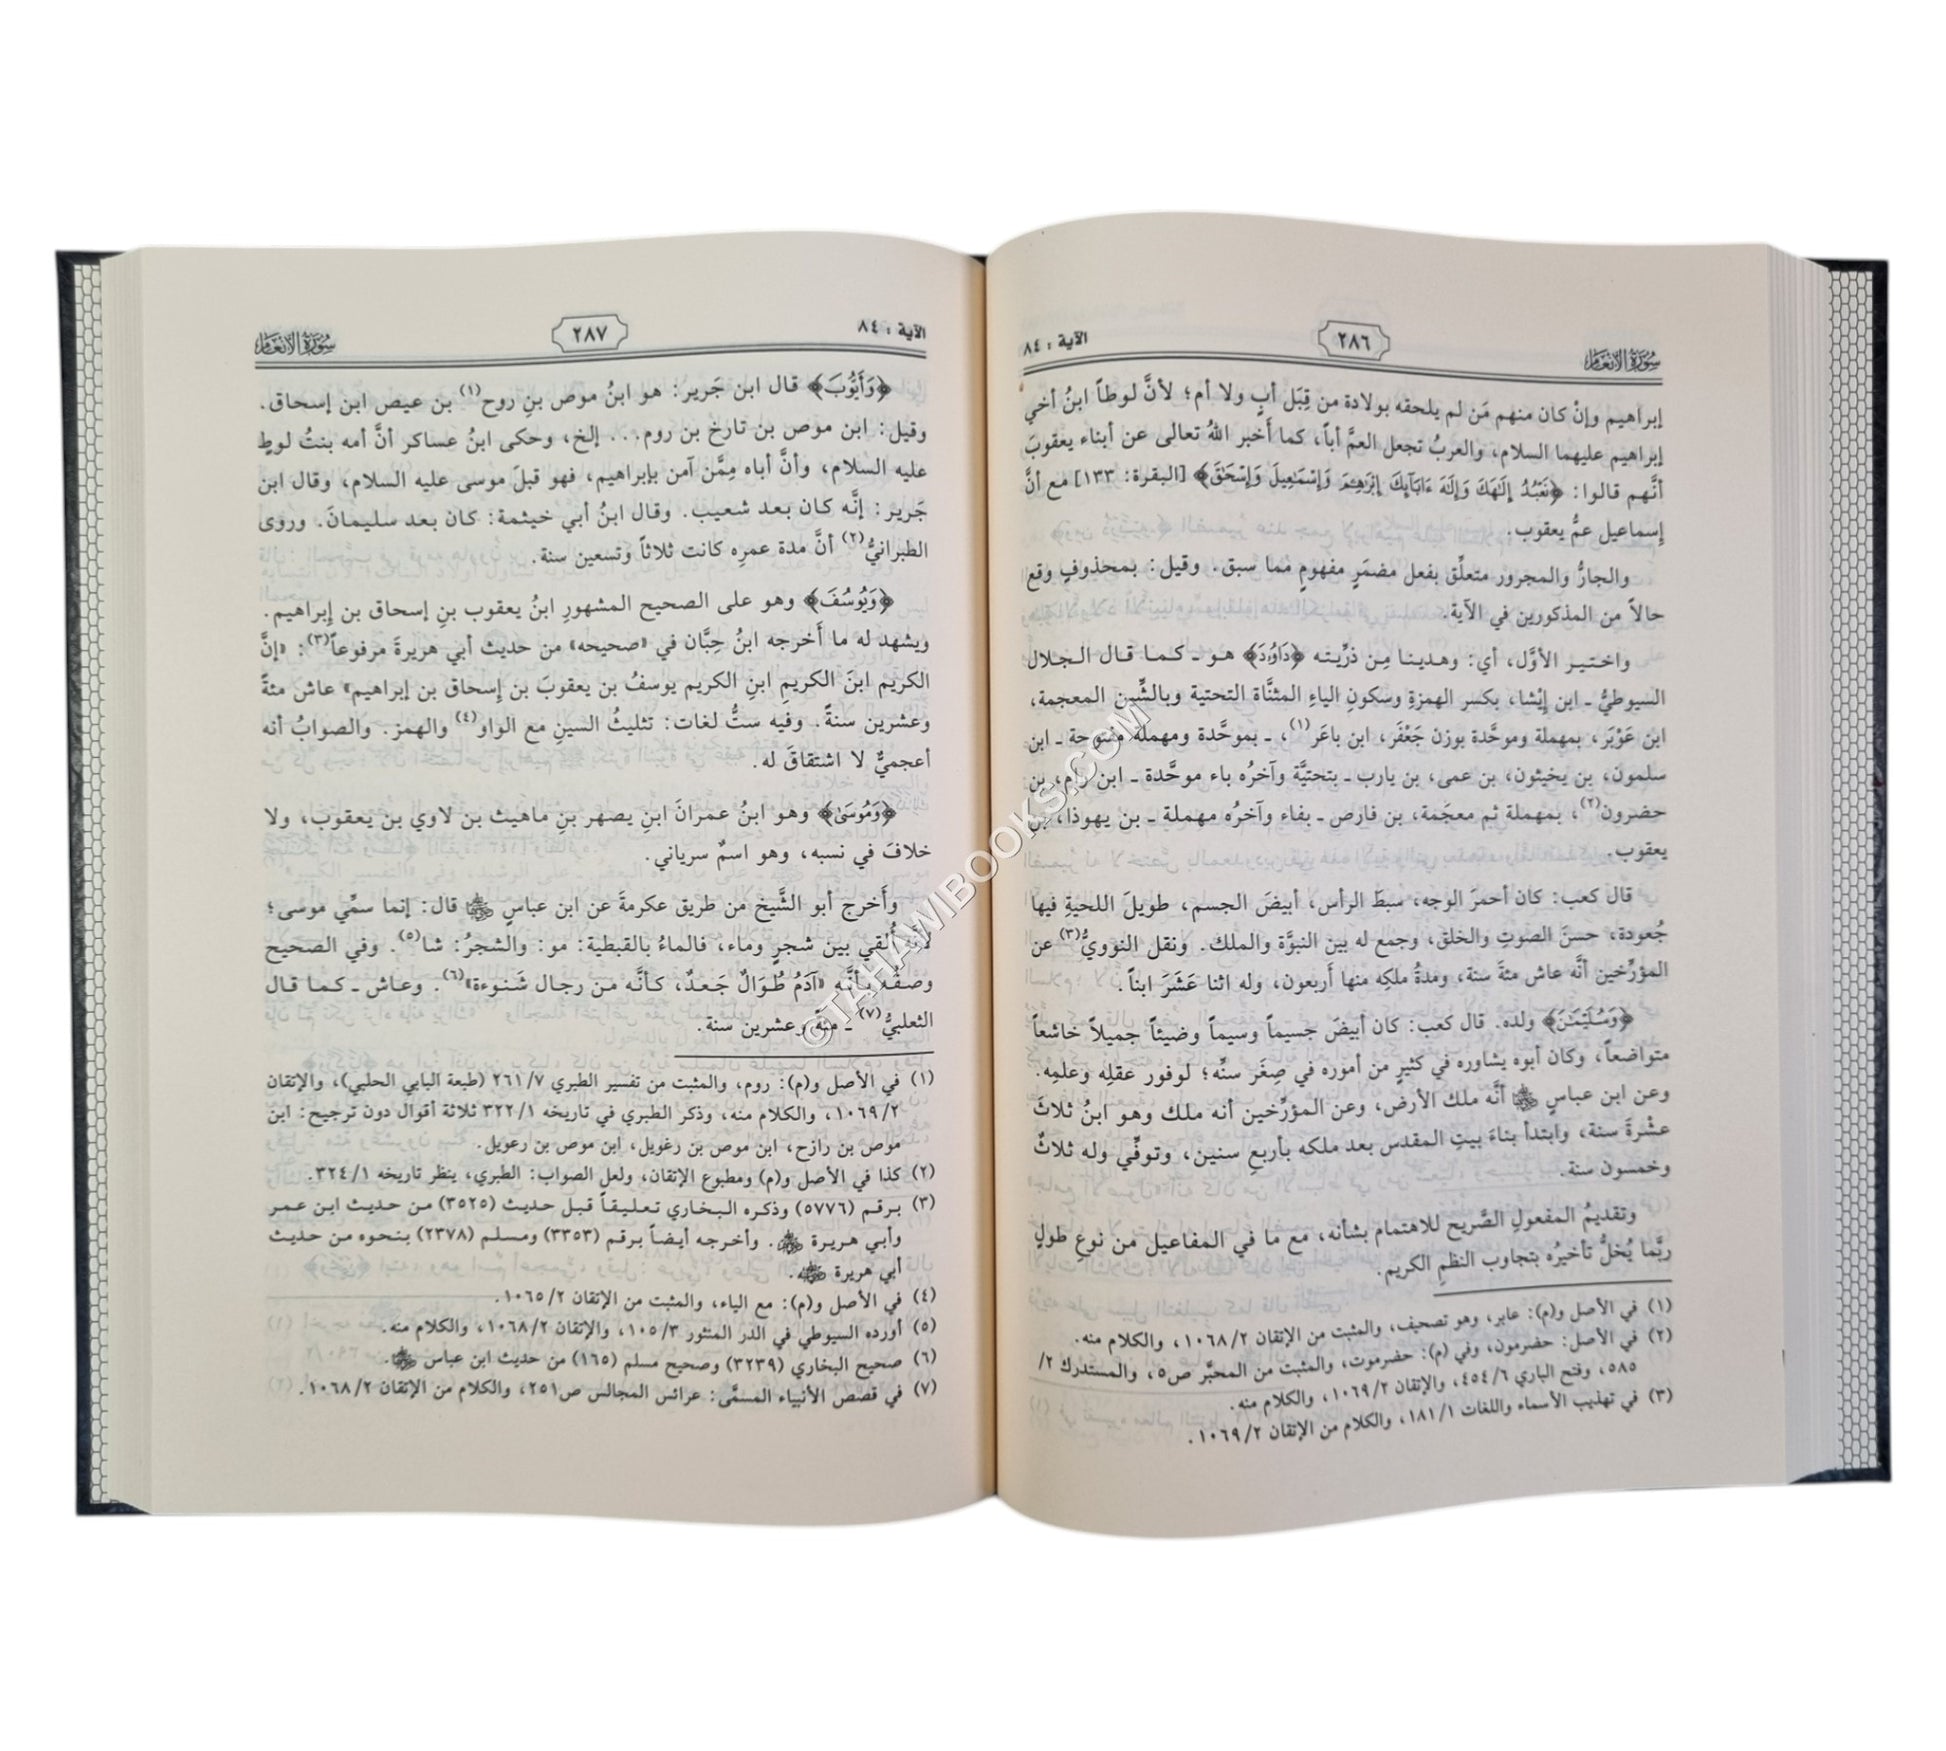 سورة الأنعام
٢٨٦
الآية : ٨٤
إبراهيم وإنْ كان منهم مَن لم يلحقه بولادة من قِبَل أبٍ ولا أم؛ لأنَّ لوطاً ابنُ أخي
إبراهيم عليهما السلام، والعربُ تجعل العمَّ أباً، كما أَخبر اللهُ تعالى عن أبناء يعقوبَ
أنَّهم قالوا: ﴿نَعْبُدُ إِلَٰهَكَ وَإِلَٰهَ ءَابَآئِكَ إِبْرَٰهِـۧمَ وَإِسْمَٰعِيلَ وَإِسْحَٰقَ﴾ [البقرة: ١٣٣] مع أنَّ
إسماعيل عمُّ يعقوب.
والجارُّ والمجرور متعلِّق بفعل مضمَرٍ مفهومٍ مما سبق. وقيل: بمحذوفٍ وقع
حالاً من المذكورين في الآية.
واختير الأوَّل، أي: وهدينا مِن ذرِّيته ﴿دَاوُۥدَ﴾ هو ـ كما قال الجلال
السيوطيُّ ـ ابن إِيْشا، بكسر الهمزةِ وسكونِ الياءِ المثنَّاة التحتية وبالشِّين المعجمة،
ابن عَوْبَر، بمهملة وموحَّدة بوزن جَعْفَر، ابن باعَر(١)، ـ بموحَّدة ومهملة مفتوحة ـ ابن
سلمون، بن يخيثون، بن عمى، بن يارب ـ بتحتيَّة وآخرُه باء موحَّدة ـ ابن رام، بن
حضرون(٢)، بمهملة ثم معجَمة، بن فارص ـ بفاء وآخرُه مهملة ـ بن يهوذا، بن
يعقوب.
قال كعب: كان أحمرَ الوجه، سبطَ الرأس، أبيضَ الجسم، طويلَ اللحيةِ فيها
جُعودة، حسنَ الصوتِ والخلق، وجمع له بين النبوَّة والملك. ونقل النوويُّ(٣) عن
المؤرِّخين أنَّه عاش مئةَ سنة، ومدةُ ملكِه منها أربعون، وله اثنا عَشَرَ ابناً.
﴿وَسُلَيْمَٰنَ﴾ ولده. قال كعب: كان أبيضَ جسيماً وسيماً وضيئاً جميلاً خاشعاً
متواضعاً، وكان أبوه يشاوره في كثيرٍ من أموره في صِغَر سنِّه؛ لوفور عقلِه وعلمِه.
وعن ابن عباسٍ ﷺ أنَّه ملك الأرض، وعن المؤرِّخين أنه ملك وهو ابنُ ثلاثَ
عشْرةَ سنة، وابتدأ بناءَ بيتِ المقدس بعد ملكه بأربعِ سنين، وتوفِّي وله ثلاثٌ
وخمسون سنة.
وتقديمُ المفعولِ الصَّريح للاهتمام بشأنه، مع ما في المفاعيل من نوعِ طولٍ
ربَّما يُخلُّ تأخيرُه بتجاوب النظمِ الكريم.
(١) في الأصل و(م): عابر، وهو تصحيف، والمثبت من الإتقان ١٠٦٨/٢، والكلام منه.
(٢) في الأصل: حضرمون، وفي (م): حضرموت، والمثبت من المحبَّر ص٥، والمستدرك ٢/
٥٨٥، وفتح الباري ٤٥٤/٦، والإتقان ١٠٦٩/٢، والكلام منه.
(٣) في تهذيب الأسماء واللغات ١٨١/١، والكلام من الإتقان ١٠٦٩/٢.
الآية : ٨٤
٢٨٧
سورة الأنعام
﴿وَأَيُّوبَ﴾ قال ابن جَرير: هو ابنُ موص بنِ روح(١) بن عيص ابن إسحاق.
وقيل: ابن موص بن تارخ بن روم... إلخ، وحكى ابنُ عساكر أنَّ أمه بنتُ لوطٍ
عليه السلام، وأنَّ أباه مِمَّن آمن بإبراهيم، فهو قبلَ موسى عليه السلام، وقال ابن
جَرير: إنَّه كان بعد شعيب. وقال ابنُ أبي خيثمة: كان بعد سليمانَ. وروى
الطبرانيُّ(٢) أنَّ مدة عمرِه كانت ثلاثاً وتسعين سنة.
﴿وَيُوسُفَ﴾ وهو على الصحيح المشهورِ ابنُ يعقوب بنِ إسحاق بن إبراهيم.
ويشهد له ما أَخرجه ابنُ حِبَّان في «صحيحه» من حديث أبي هريرةَ مرفوعاً(٣): «إنَّ
الكريم ابنَ الكريمِ ابنِ الكريم يوسفُ بن يعقوبَ بن إسحاق بن إبراهيم» عاش مئةً
وعشرين سنةً. وفيه ستُّ لغات: تثليثُ السينِ مع الواو(٤) والهمز. والصوابُ أنه
أعجميٌّ لا اشتقاقَ له.
﴿وَمُوسَىٰ﴾ وهو ابنُ عمرانَ ابنِ يصهر بنِ ماهيث بن لاوي بن يعقوب، ولا
خلافَ في نسبه، وهو اسمٌ سرياني.
وأَخرج أبو الشَّيخ من طريق عكرمةَ عن ابن عباسٍ ﷺ قال: إنما سمِّي موسى؛
لأنه أُلقي بين شجرٍ وماء، فالماءُ بالقبطية: مو: والشجرُ: شا(٥). وفي الصحيح
وصفُه بأنَّه «آدَمُ طُوَالٌ جَعدٌ، كأنَّه من رجال شَنوءة»(٦). وعاش ـ كما قال
الثعلبيُّ(٧) ـ مئةً وعشرين سنة.
(١) في الأصل و(م): روم، والمثبت من تفسير الطبري ٢٦١/٧ (طبعة البابي الحلبي)، والإتقان
١٠٦٩/٢، والكلام منه، وذكر الطبري في تاريخه ٣٢٢/١ ثلاثة أقوال دون ترجيح: ابن
موص بن رازح، ابن موص بن رغويل، ابن موص بن رعويل.
(٢) كذا في الأصل و(م) ومطبوع الإتقان، ولعل الصواب: الطبري، ينظر تاريخه ٣٢٤/١.
(٣) برقم (٥٧٧٦) وذكره البخاري تعليقاً قبل حديث (٣٥٢٥) من حديث ابن عمر
وأبي هريرة ﷺ. وأخرجه أيضاً برقم (٣٣٥٣) ومسلم (٢٣٧٨) بنحوه من حديث
أبي هريرة ﷺ.
(٤) في الأصل و(م): مع الياء، والمثبت من الإتقان ١٠٦٥/٢.
(٥) أورده السيوطي في الدر المنثور ١٠٥/٣، والإتقان ١٠٦٨/٢، والكلام منه.
(٦) صحيح البخاري (٣٢٣٩) وصحيح مسلم (١٦٥) من حديث ابن عباس ﷺ.
(٧) في قصص الأنبياء المسمَّى: عرائس المجالس ص٢٥١، والكلام من الإتقان ١٠٦٨/٢.
©TAHAWIBOOKS.COM